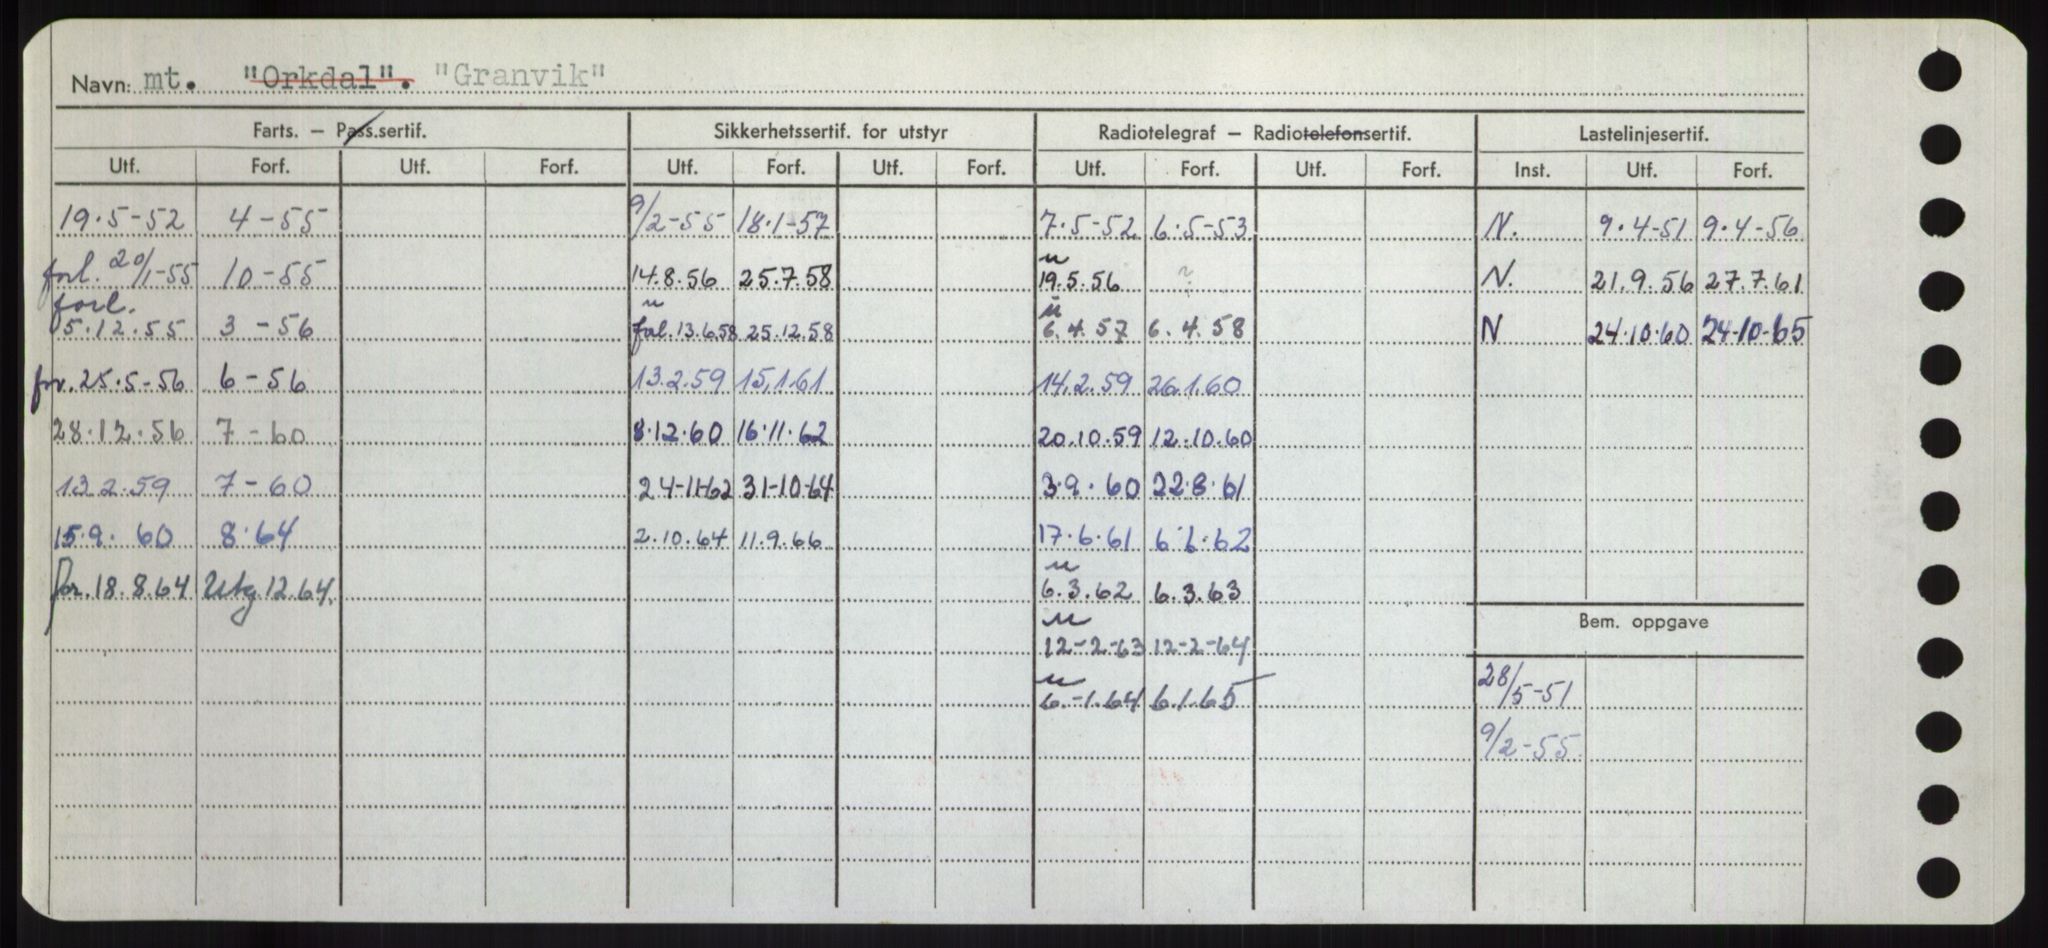 Navn: mt. "Orkdal". "Granvik"
Farts. – Pass.sertif. Sikkerhetssertif. for utstyr Radiotelegraf – Radiotelefonsertif. Lastelinjesertif.
Utf. Forf. Utf. Forf. Utf. Forf. Utf. Forf. Utf. Forf. Utf. Forf. Inst. Utf. Forf.
19.5-52 4-55 9/2-55 18.1-57 7.5-52 6.5-53 N. 9.4-51 9.4-56
forl. 20/1-55 10-55 14.8.56 25.7.58 19.5.56 N. 21.9.56 27.7.61
forl.
5.12.55 3-56 forl. 13.6.58 25.12.58 6.4.57 6.4.58 N 24.10.60 24-10-65
for. 25.5-56 6-56 13.2.59 15.1.61 14.2.59 26.1.60
28.12.56 7-60 8.12.60 16.11.62 20.10.59 12.10.60
13.2.59 7-60 24-11-62 31-10-64 3.9.60 22.8.61
15.9.60 8.64 2.10.64 11.9.66 17.6.61 6.6.62
for. 18.8.64 Utg. 12.64. 6.3.62 6.3.63
Bem. oppgave
12-2-63 12-2-64
28/5-51
6.-1.64 6.1.65
9/2-55